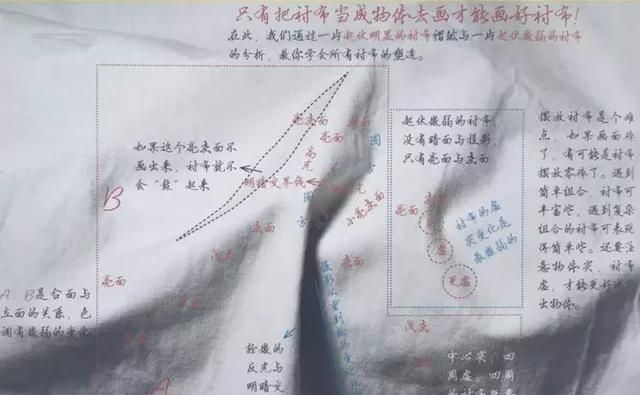 只有把衬布当成物体去画才能画好衬布!
在此,我们通过一片起伏明显的衬布褶皱与一片起伏微弱的衬布
的分析,教你学会所有衬布的塑造。
如果这个亮灰面不
画出来,衬布就不
会“鼓”起来
亮灰面
灰面
亮面
高光
明暗交界线
圆
方
小亮灰面
灰面
灰面
浅灰
亮面
亮面
B
A、B是台面与
立面的关系,色
调有微弱的变化
A
轻微的
反光与
明暗交
起伏微弱的衬布,
没有暗面与投影,
只有亮面与灰面
亮面
灰面
衬布的虚
实变化是
最微弱的
虚
更虚
浅灰
灰面
亮面
摆放衬布是个难
点,如果画面碎
了,有可能是衬布
摆放零碎了。遇到
简单组合,衬布可
丰富些,遇到复杂
组合的衬布可表现
得简单些。还要注
意物体实,衬布
虚,才能更好地突
出物体。
中心实,四
周虚。四周